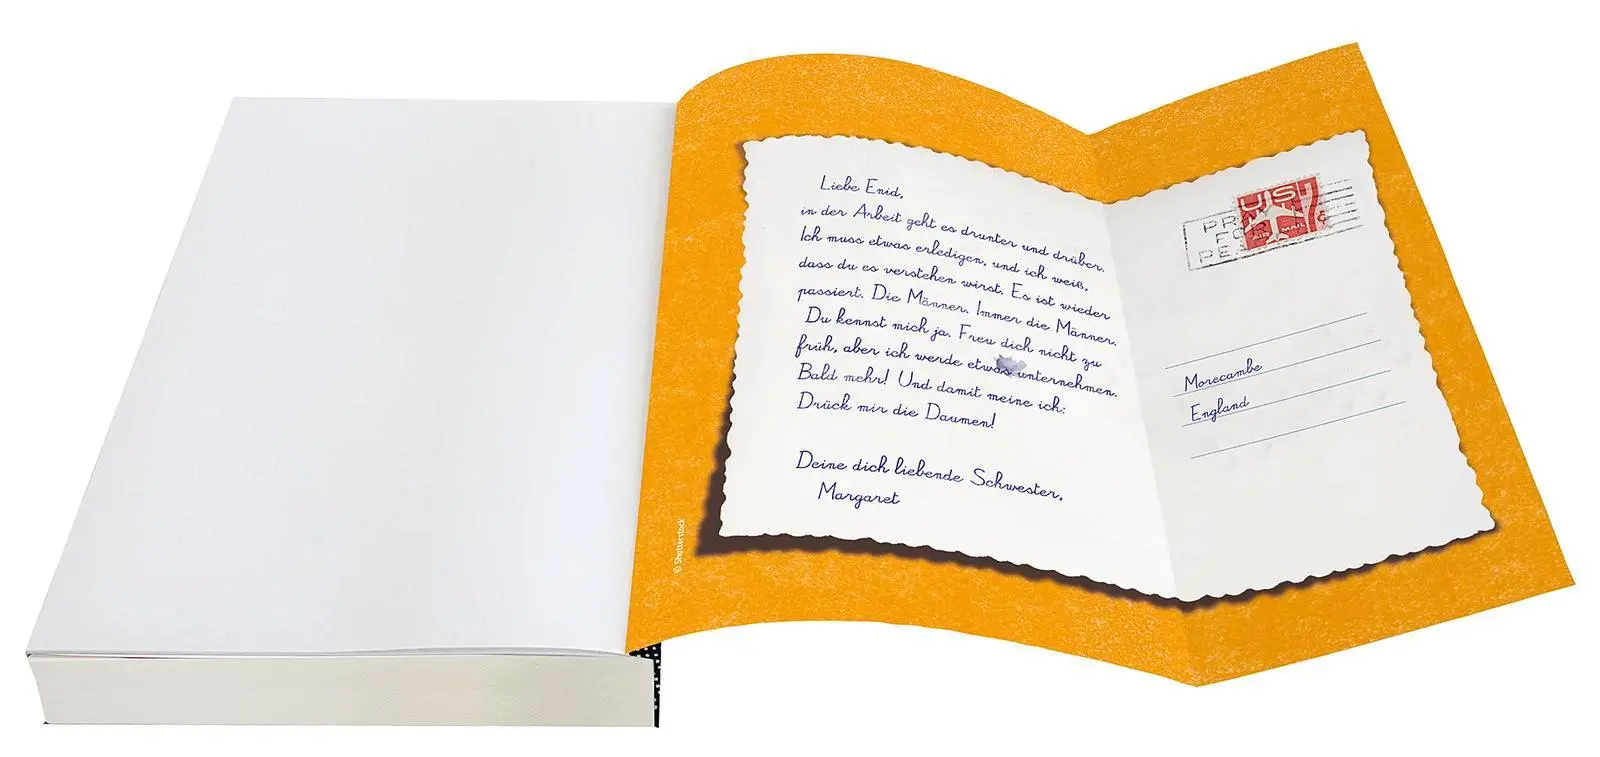 Liebe Enid,
in der Arbeit geht es drunter und drüber.
Ich muss etwas erledigen, und ich weiß,
dass du es verstehen wirst. Es ist wieder
passiert. Die Männer. Immer die Männer.
Du kennst mich ja. Freu dich nicht zu
früh, aber ich werde etwas unternehmen.
Bald mehr! Und damit meine ich:
Drück mir die Daumen!
Deine dich liebende Schwester,
Margaret
© Shutterstock
US 7¢
AIR MAIL
PR
FOR
PE
Morecambe
England